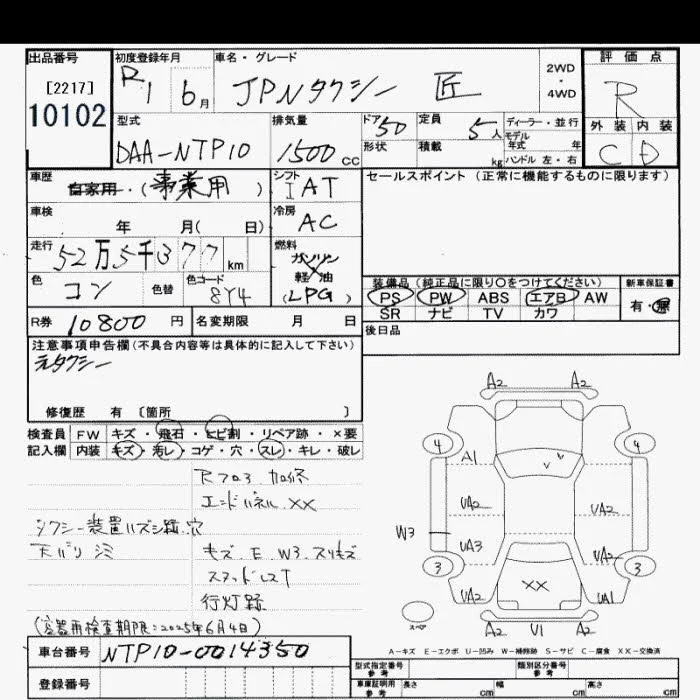 出品番号
[2217]
10102
初度登録年月
R1 6月
車名・グレード
JPNタクシー 匠
2WD
・
4WD
評価点
R
外装 内装
C D
型式
DAA-NTP10
排気量
1500cc
ドア 5D
形状
定員
5人
積載
kg
ディーラー・並行
モデル
年式 年
ハンドル 左・右
車歴
自家用・(事業用)
シフト
I AT
セールスポイント (正常に機能するものに限ります)
車検
年 月( 日)
冷房
AC
走行
52万5千377km
燃料
ガソリン
軽油
(LPG)
色
コン
色替
色コード
8Y4
装備品 (純正品に限り○をつけてください)
PS PW ABS エアB AW
SR ナビ TV カワ
新車保証書
有・無
R券 10800円
名変期限 月 日
後日品
注意事項申告欄(不具合内容等は具体的に記入して下さい)
元タクシー
修復歴 有 〔箇所 〕
検査員
記入欄
FW キズ・飛石・ヒビ割・リペア跡・×要
内装 キズ・汚レ・コゲ・穴・スレ・キレ・破レ
Rフロア加修
エンドパネル XX
タクシー装置ハズシ跡.穴
天バリ シミ
キズ.E.W3.スリキズ
行灯跡
(容器再検査期限:2025年6月4日)
車台番号 NTP10-0014350
登録番号
A2 A2
4 4
A1
UA2 UA2
W3
UA3 UA2
3 3
XX
UA2 UA1
スペア
A2 U1 A2
A-キズ E-エクボ U-凹み W-補修跡 S-サビ C-腐食 XX-交換済
型式指定番号
参考
類別区分番号
参考
車庫証明用
参考
長さ cm
幅 cm
高さ cm